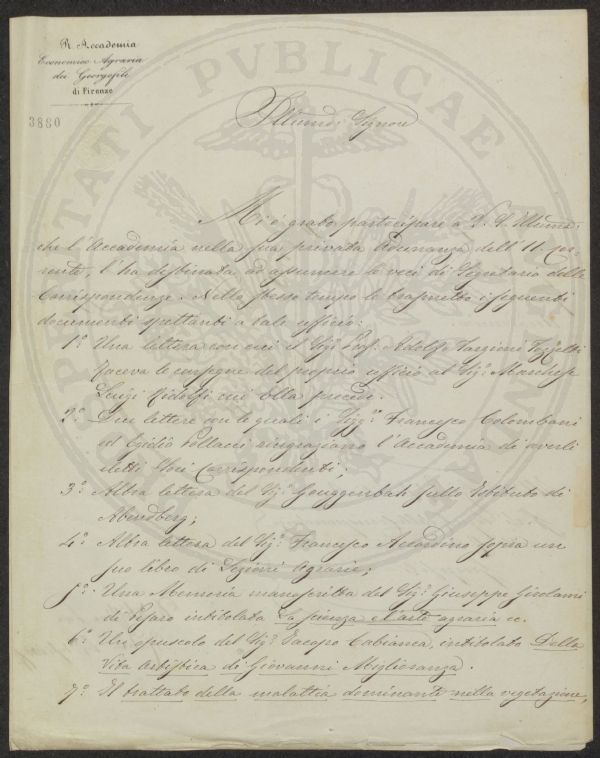 R. Accademia
Economico Agraria
dei Georgofili
di Firenze
3880
PROSPERITATI PVBLICAE AVGENDAE
Illmo: Signore
Mi è grato partecipare a V. S. Illma:
che l'Accademia nella sua privata Adunanza dell' 11. cor-
rente, l'ha destinata ad assumere le veci di Segretario delle
Corrispondenze. Nello stesso tempo le trasmetto i seguenti
documenti spettanti a tale ufficio:
1.º Una lettera con cui il Sig: Prof: Adolfo Targioni Tozzetti
faceva le consegne del proprio ufficio al Sig: Marchese
Luigi Ridolfi cui Ella precede.
2.º Due lettere con le quali i Sigg:ri Francesco Colombani
ed Egidio Pollacci ringraziano l'Accademia di averli
eletti Soci Corrispondenti;
3.º Altra lettera del Sig: Gouggenbah sullo Istituto di
Abendberg;
4.º Altra lettera del Sig: Francesco Accardino sopra un
suo libro di Lezioni Agrarie;
5.º Una Memoria manoscritta del Sig: Giuseppe Girolami
di Pesaro intitolata La scienza e l'arte agraria ec.
6.º Un opuscolo del Sig: Jacopo Cabianca, intitolato Della
Vita Artistica di Giovanni Miglioranza.
7.º Il trattato della malattia dominante nella vegetazione,